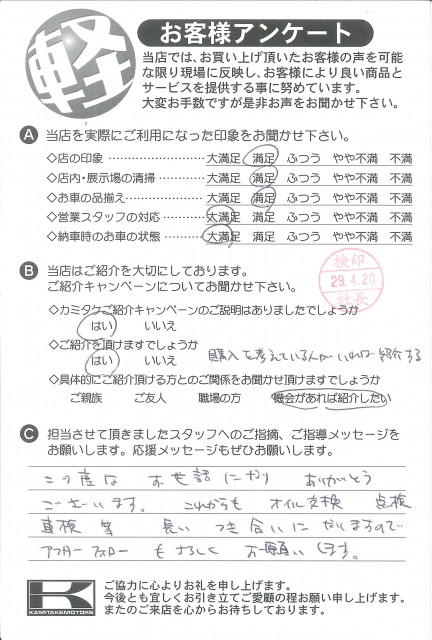 軽
お客様アンケート
当店では、お買い上げ頂いたお客様の声を可能
な限り現場に反映し、お客様により良い商品と
サービスを提供する事に努めています。
大変お手数ですが是非お声をお聞かせ下さい。
A 当店を実際にご利用になった印象をお聞かせ下さい。
◇店の印象 ………………… 大満足 満足 ふつう やや不満 不満
◇店内・展示場の清掃 ………… 大満足 満足 ふつう やや不満 不満
◇お車の品揃え ……………… 大満足 満足 ふつう やや不満 不満
◇営業スタッフの対応 ………… 大満足 満足 ふつう やや不満 不満
◇納車時のお車の状態 ………… 大満足 満足 ふつう やや不満 不満
B 当店はご紹介を大切にしております。
ご紹介キャンペーンについてお聞かせ下さい。
検印
29.4.20
社長
◇カミタケご紹介キャンペーンのご説明はありましたでしょうか
はい いいえ
◇ご紹介を頂けますでしょうか
はい いいえ 購入を考えている人がいれば紹介する
◇具体的にご紹介頂ける方とのご関係をお聞かせ頂けますでしょうか
ご親族 ご友人 職場の方 機会があれば紹介したい
C 担当させて頂きましたスタッフへのご指摘、ご指導メッセージを
お願いします。応援メッセージもぜひお願いします。
この度は お世話になり ありがとう
ございます。 これからも オイル交換 点検
車検 等 長い つき合いに なりますので
アフターフォロー も よろしく お願い します。
K
KAMITAKEMOTORS
ご協力に心よりお礼を申し上げます。
今後とも宜しくお引き立てご愛顧の程お願い申し上げます。
またのご来店を心からお待ちしております。